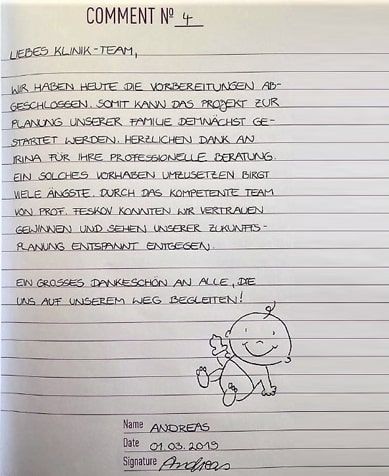 COMMENT Nº 4
LIEBES KLINIK-TEAM,
WIR HABEN HEUTE DIE VORBEREITUNGEN AB-
GESCHLOSSEN. SOMIT KANN DAS PROJEKT ZUR
PLANUNG UNSERER FAMILIE DEMNÄCHST GE-
STARTET WERDEN. HERZLICHEN DANK AN
IRINA FÜR IHRE PROFESSIONELLE BERATUNG.
EIN SOLCHES VORHABEN UMZUSETZEN BIRGT
VIELE ÄNGSTE. DURCH DAS KOMPETENTE TEAM
VON PROF. FESKOV KONNTEN WIR VERTRAUEN
GEWINNEN UND SEHEN UNSERER ZUKUNFTS-
PLANUNG ENTSPANNT ENTGEGEN.
EIN GROSSES DANKESCHÖN AN ALLE, DIE
UNS AUF UNSEREM WEG BEGLEITEN!
Name ANDREAS
Date 01.03.2019
Signature Andreas